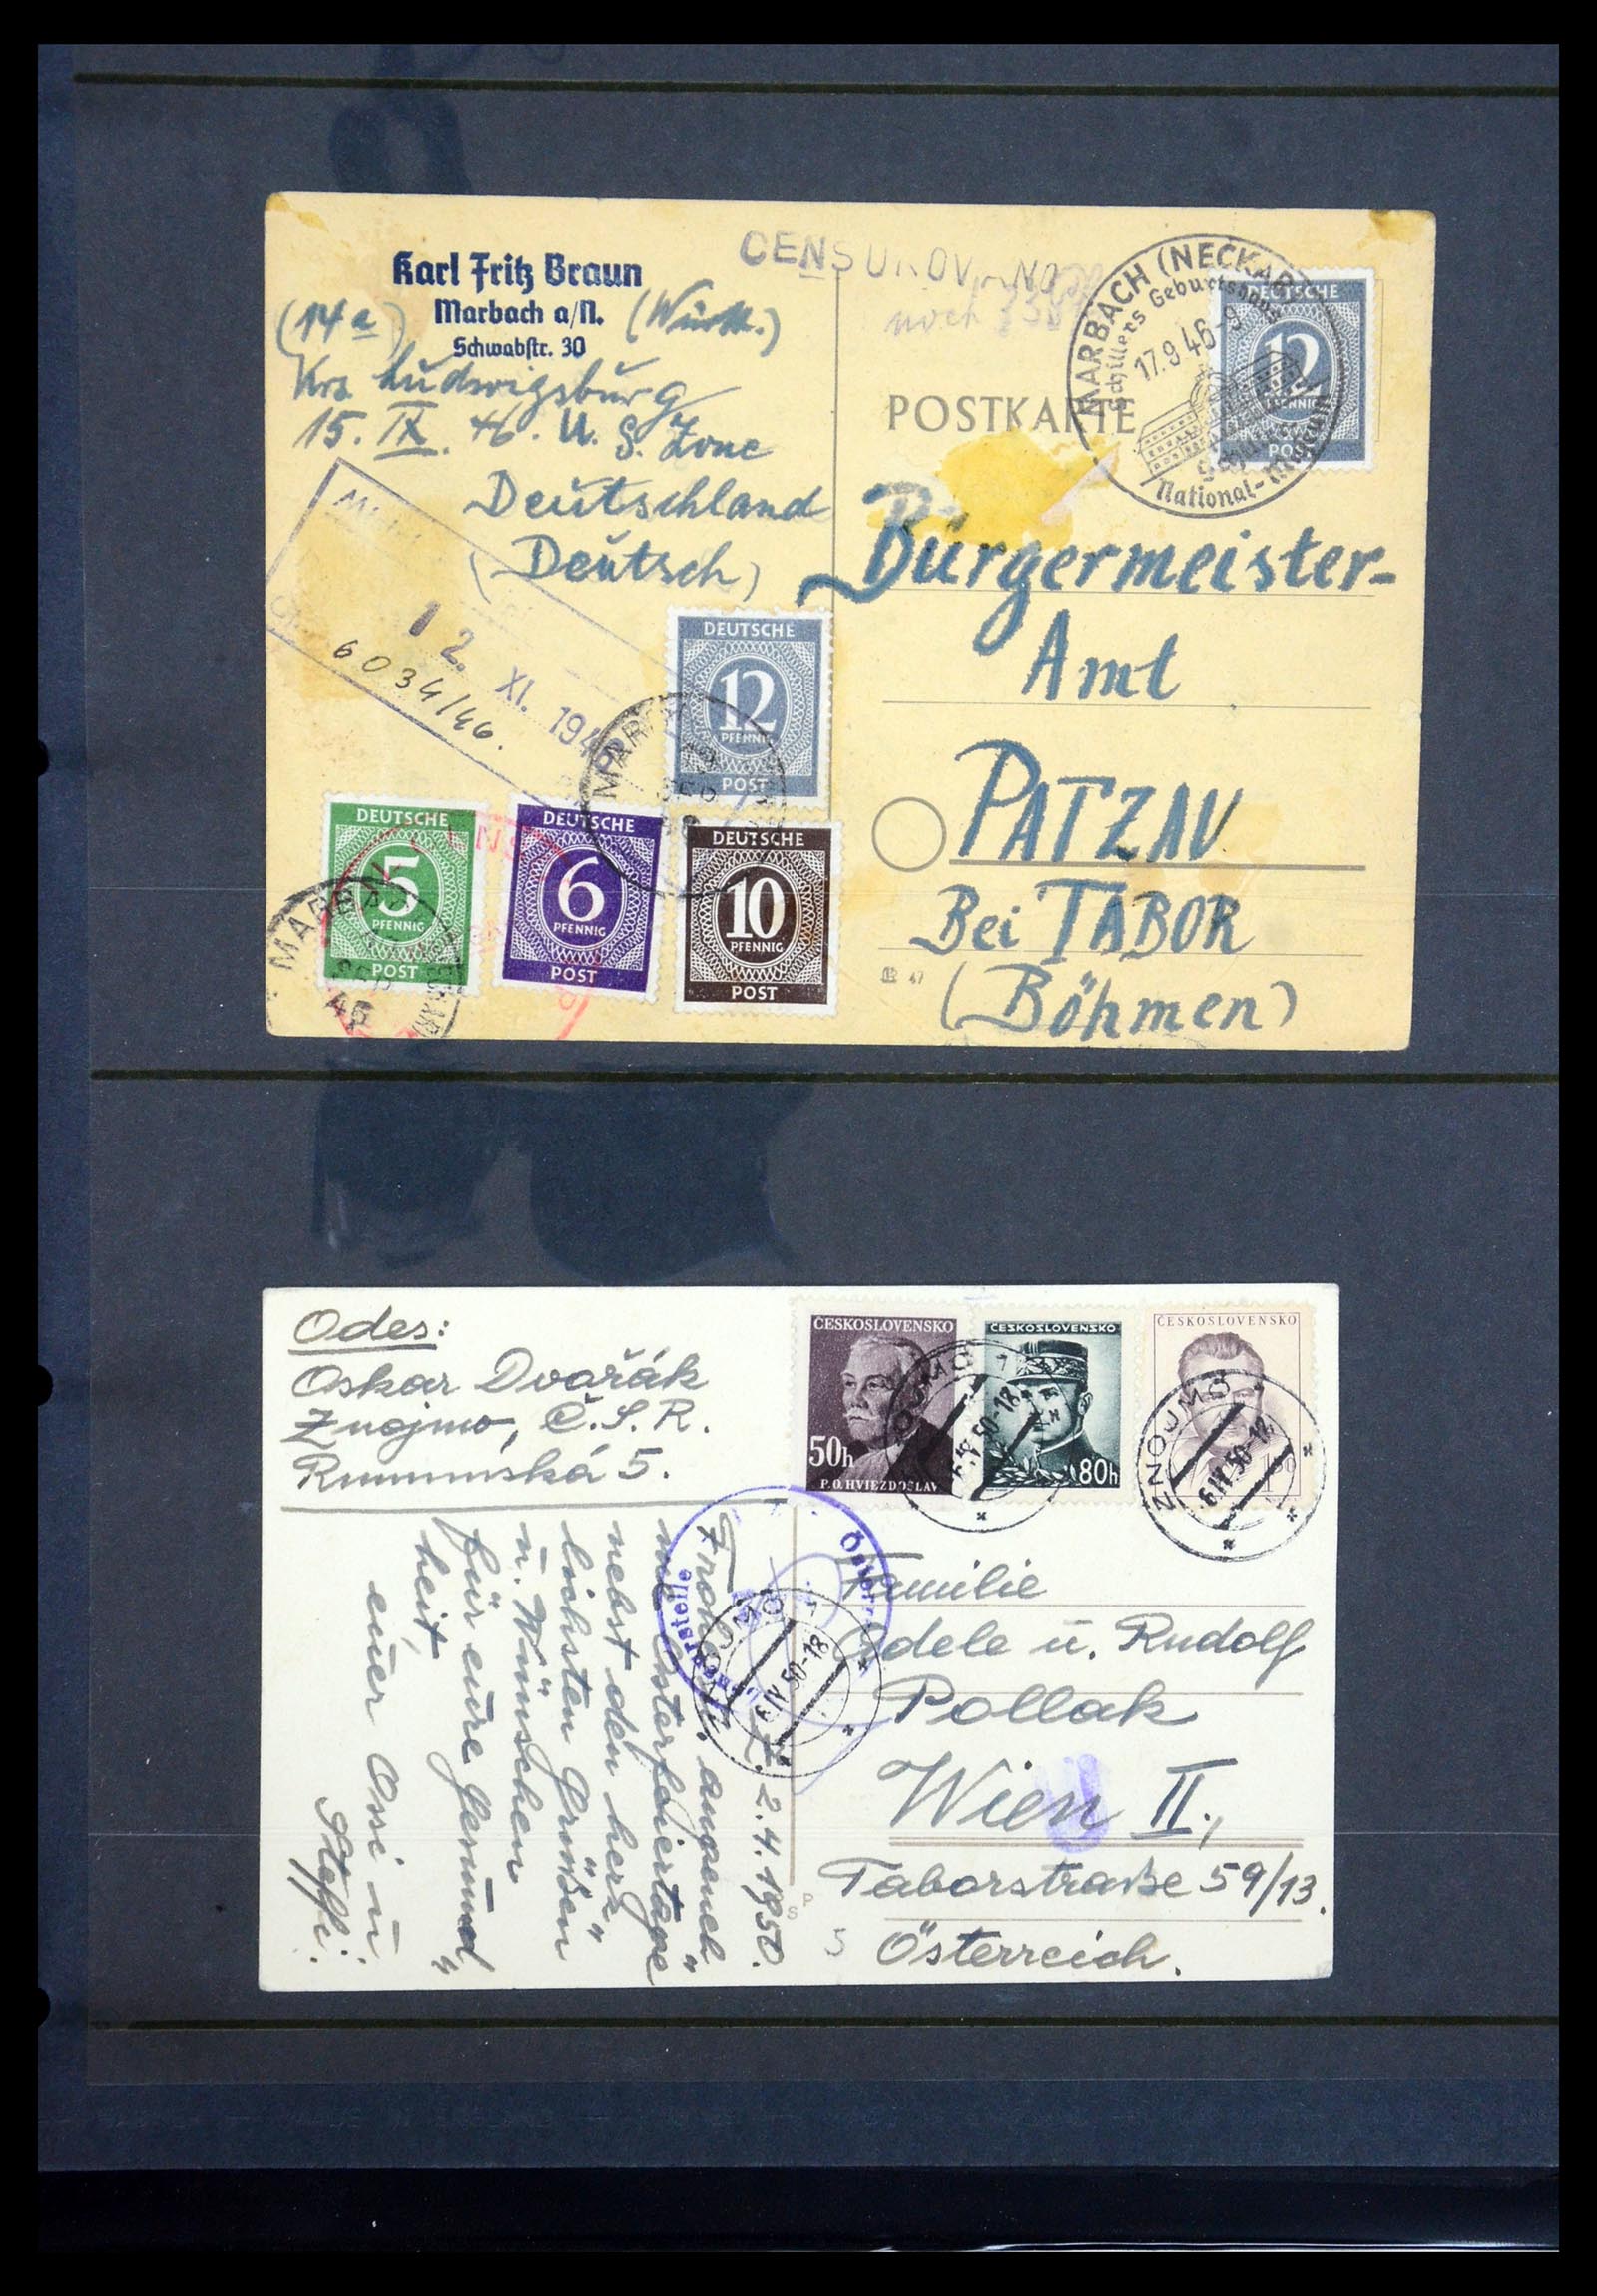 Karl Fritz Braun
(14a) Marbach a/N. (Württ.)
Schwabstr. 30
Krs. Ludwigsburg
15. IX. 46. U. S. Zone
Deutschland
(Deutsch)
12. XI. 1946
6034/46.
CENSUROVÁNO
noch
MARBACH (NECKAR)
Schillers Geburtsort
17.9.46-9
National-Museum
POSTKARTE
DEUTSCHE
12
PFENNIG
POST
Bürgermeister-
Amt
PATZAU
Bei TABOR
(Böhmen)
DEUTSCHE
12
PFENNIG
POST
DEUTSCHE
5
PFENNIG
POST
DEUTSCHE
6
PFENNIG
POST
DEUTSCHE
10
PFENNIG
POST
MARBACH
SEP
46
47
Odes:
Oskar Dvořák
Znojmo, Č.S.R.
Rumunská 5.
ČESKOSLOVENSKO
50h
P.O.HVIEZDOSLAV
ČESKOSLOVENSKO
80h
ČESKOSLOVENSKO
ZNOJMO 1
6.IV.50-18
ZNOJMO
6.IV.50-18
ZNOJMO 1
6.IV.50-18
Zensurstelle
Z. 2.4.1950.
Frohe u. angeneh"
me Osterfeiertage
nebst den herz"
lichsten Grüßen
u. Wünschen
für eure Gesund"
heit
euer Ossi u.
Steffi.
Familie
Adele u. Rudolf
Pollak
Wien II.,
Taborstraße 59/13.
Österreich.
5
P
S